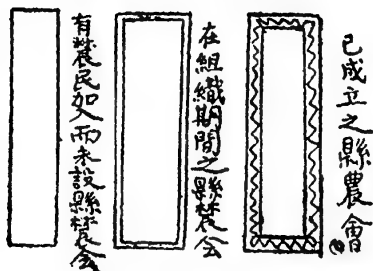 已成立之縣農會
在組織期間之縣農会
有農民加入而未設縣農会